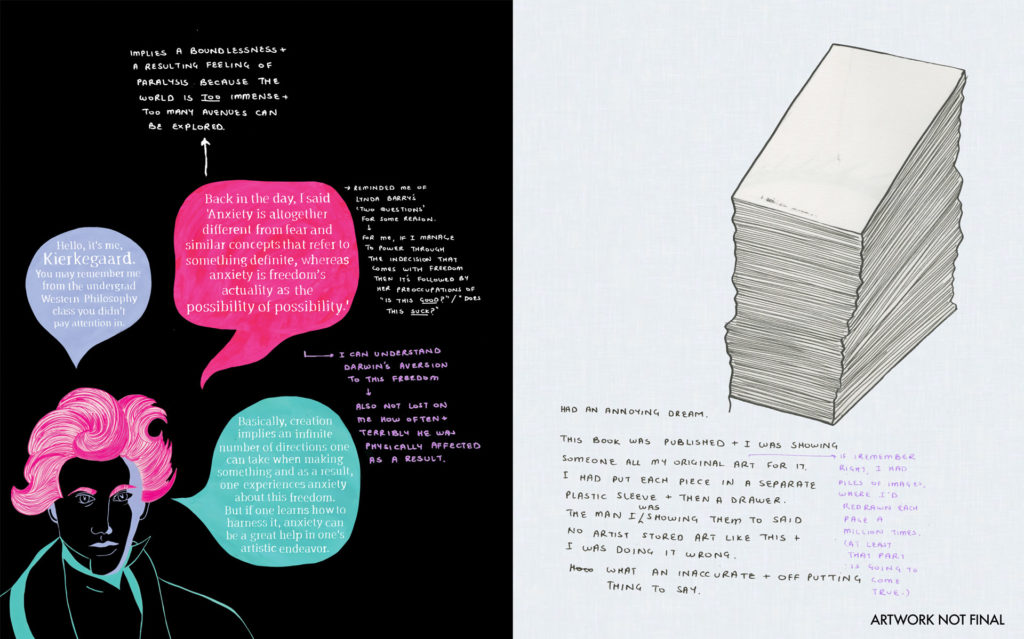 IMPLIES A BOUNDLESSNESS +
A RESULTING FEELING OF
PARALYSIS BECAUSE THE
WORLD IS TOO IMMENSE +
TOO MANY AVENUES CAN
BE EXPLORED.
Back in the day, I said
'Anxiety is altogether
different from fear and
similar concepts that refer to
something definite, whereas
anxiety is freedom's
actuality as the
possibility of possibility.'
→ REMINDED ME OF
LYNDA BARRY'S
'TWO QUESTIONS'
FOR SOME REASON.
↓
FOR ME, IF I MANAGE
TO POWER THROUGH
THE INDECISION THAT
COMES WITH FREEDOM
THEN IT'S FOLLOWED BY
HER PREOCCUPATIONS OF
"IS THIS GOOD?"/"DOES
THIS SUCK?"
Hello, it's me,
Kierkegaard.
You may remember me
from the undergrad
Western Philosophy
class you didn't
pay attention in.
→ I CAN UNDERSTAND
DARWIN'S AVERSION
TO THIS FREEDOM
↓
ALSO NOT LOST ON
ME HOW OFTEN +
TERRIBLY HE WAS
PHYSICALLY AFFECTED
AS A RESULT.
Basically, creation
implies an infinite
number of directions one
can take when making
something and as a result,
one experiences anxiety
about this freedom.
But if one learns how to
harness it, anxiety can
be a great help in one's
artistic endeavor.
HAD AN ANNOYING DREAM.
THIS BOOK WAS PUBLISHED + I WAS SHOWING
SOMEONE ALL MY ORIGINAL ART FOR IT.
I HAD PUT EACH PIECE IN A SEPARATE
PLASTIC SLEEVE + THEN A DRAWER.
THE MAN I WAS SHOWING THEM TO SAID
NO ARTIST STORED ART LIKE THIS +
I WAS DOING IT WRONG.
WHAT AN INACCURATE + OFF PUTTING
THING TO SAY.
→ IF I REMEMBER
RIGHT, I HAD
PILES OF IMAGES,
WHERE I'D
REDRAWN EACH
PAGE A
MILLION TIMES.
(AT LEAST
THAT PART
IS GOING TO
COME
TRUE.)
ARTWORK NOT FINAL